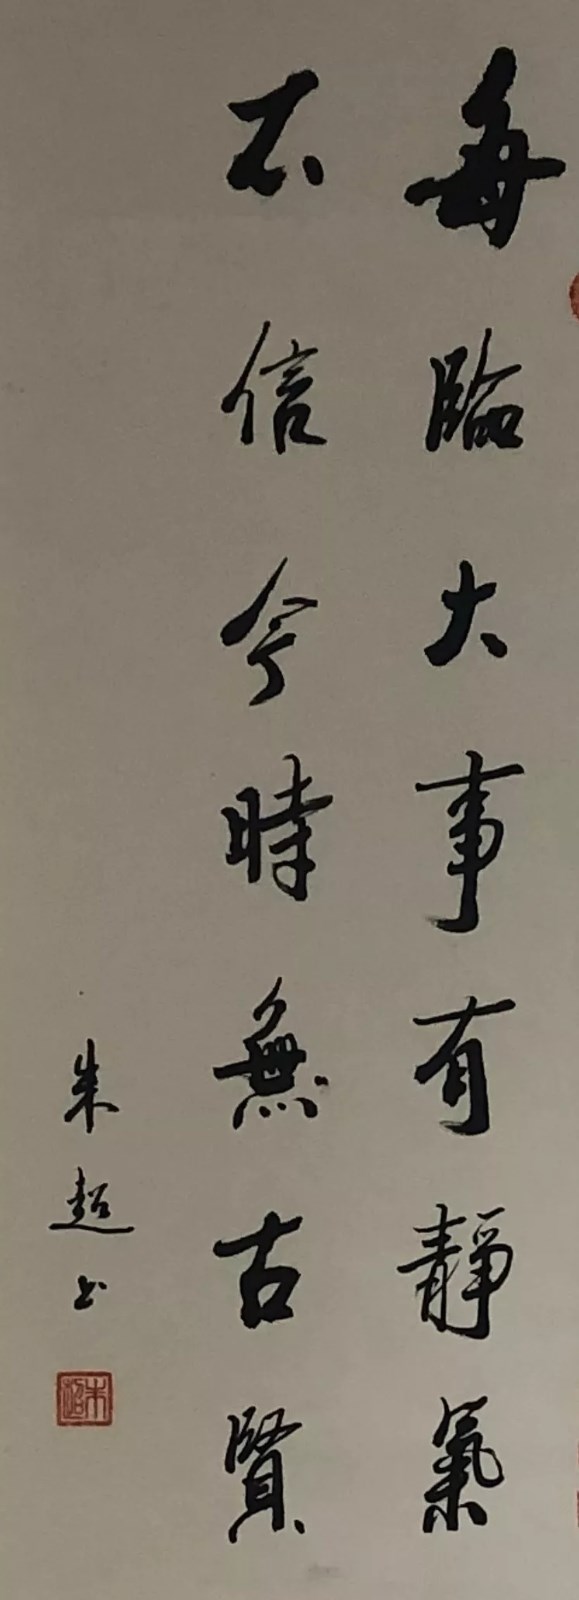 每臨大事有靜氣
不信今時無古賢
朱超书
朱超